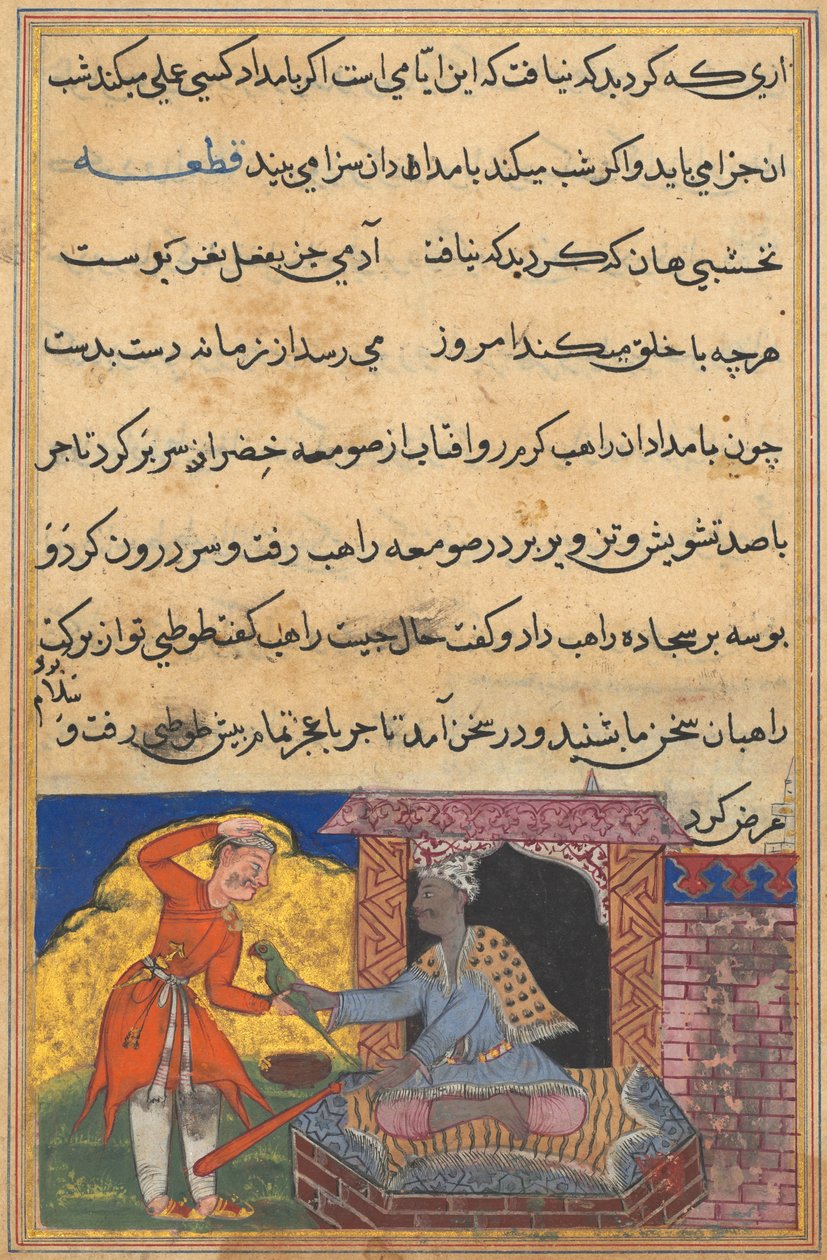 اري که کرد بد که نیافت که این ایّامي است اکر بامداد کسي عملي میکند شب
ان جزا مي یابد و اکر شب میکند بامدادان سزا مي بیند قطعه
نخشبي هان که کرد بد که نیافت آدمي جز بفعل نغز نرست
هرچه با خلق میکند امروز مي رسد از زمانه دست بدست
چون بامدادان راهب کرم رو افتاب از صومعه خضرا سر بر کرد تاجر
با صد تشویش و تزویر بر در صومعه راهب رفت و سر درون کرد و
بوسه بر سجاده راهب داد و کفت حال چیست راهب کفت طوطي تو از برکت
راهبان سخن ما بشنید و در سخن آمد تاجر با عجز تمام پیش طوطي رفت و
سلام
عرض کرد